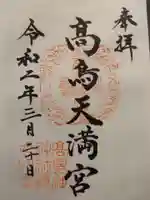 奉拝
高鳥天満宮
令和二年三月二十日